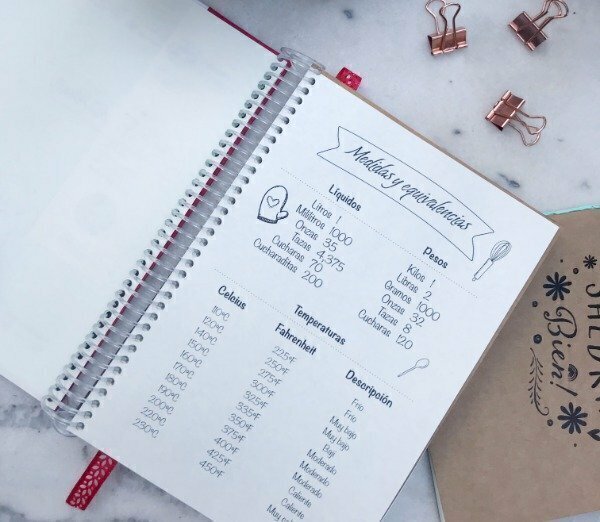 Medidas y equivalencias
Líquidos
Litros 1
Mililitros 1000
Onzas 35
Tazas 4,375
Cucharas 70
Cucharaditas 200
Pesos
Kilos 1
Libras 2
Gramos 1000
Onzas 32
Tazas 8
Cucharas 120
Temperaturas
Celcius
110ºC
120ºC
140ºC
150ºC
160ºC
170ºC
180ºC
190ºC
200ºC
220ºC
230ºC
Fahrenheit
225ºF
250ºF
275ºF
300ºF
325ºF
335ºF
350ºF
375ºF
400ºF
425ºF
450ºF
Descripción
Frío
Frío
Muy bajo
Muy bajo
Bajo
Moderado
Moderado
Moderado
Caliente
Caliente
Bien!